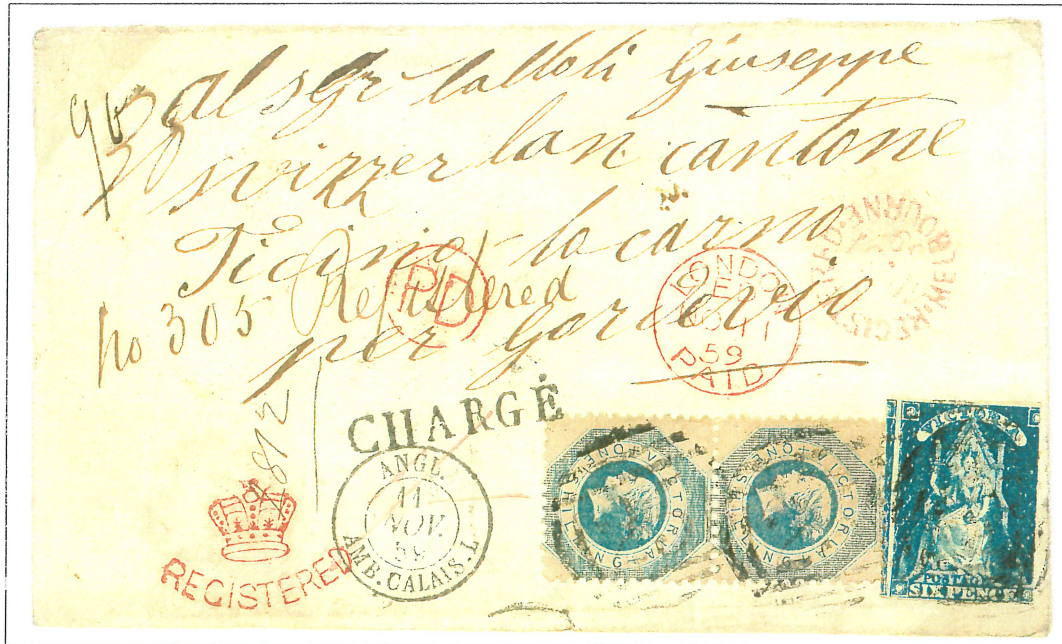 Al sgr Giuseppe
svizzer lan cantone
Ticino locarno
Registered
no 305
per Gordevio
PD
LONDON
NO 11
59
PAID
REGISTERED MELBOURNE
CHARGÉ
ANGL.
11
NOV.
59
AMB. CALAIS. L
REGISTERED
VICTORIA ONE SHILLING
VICTORIA ONE SHILLING
VICTORIA
POSTAGE
SIX PENCE